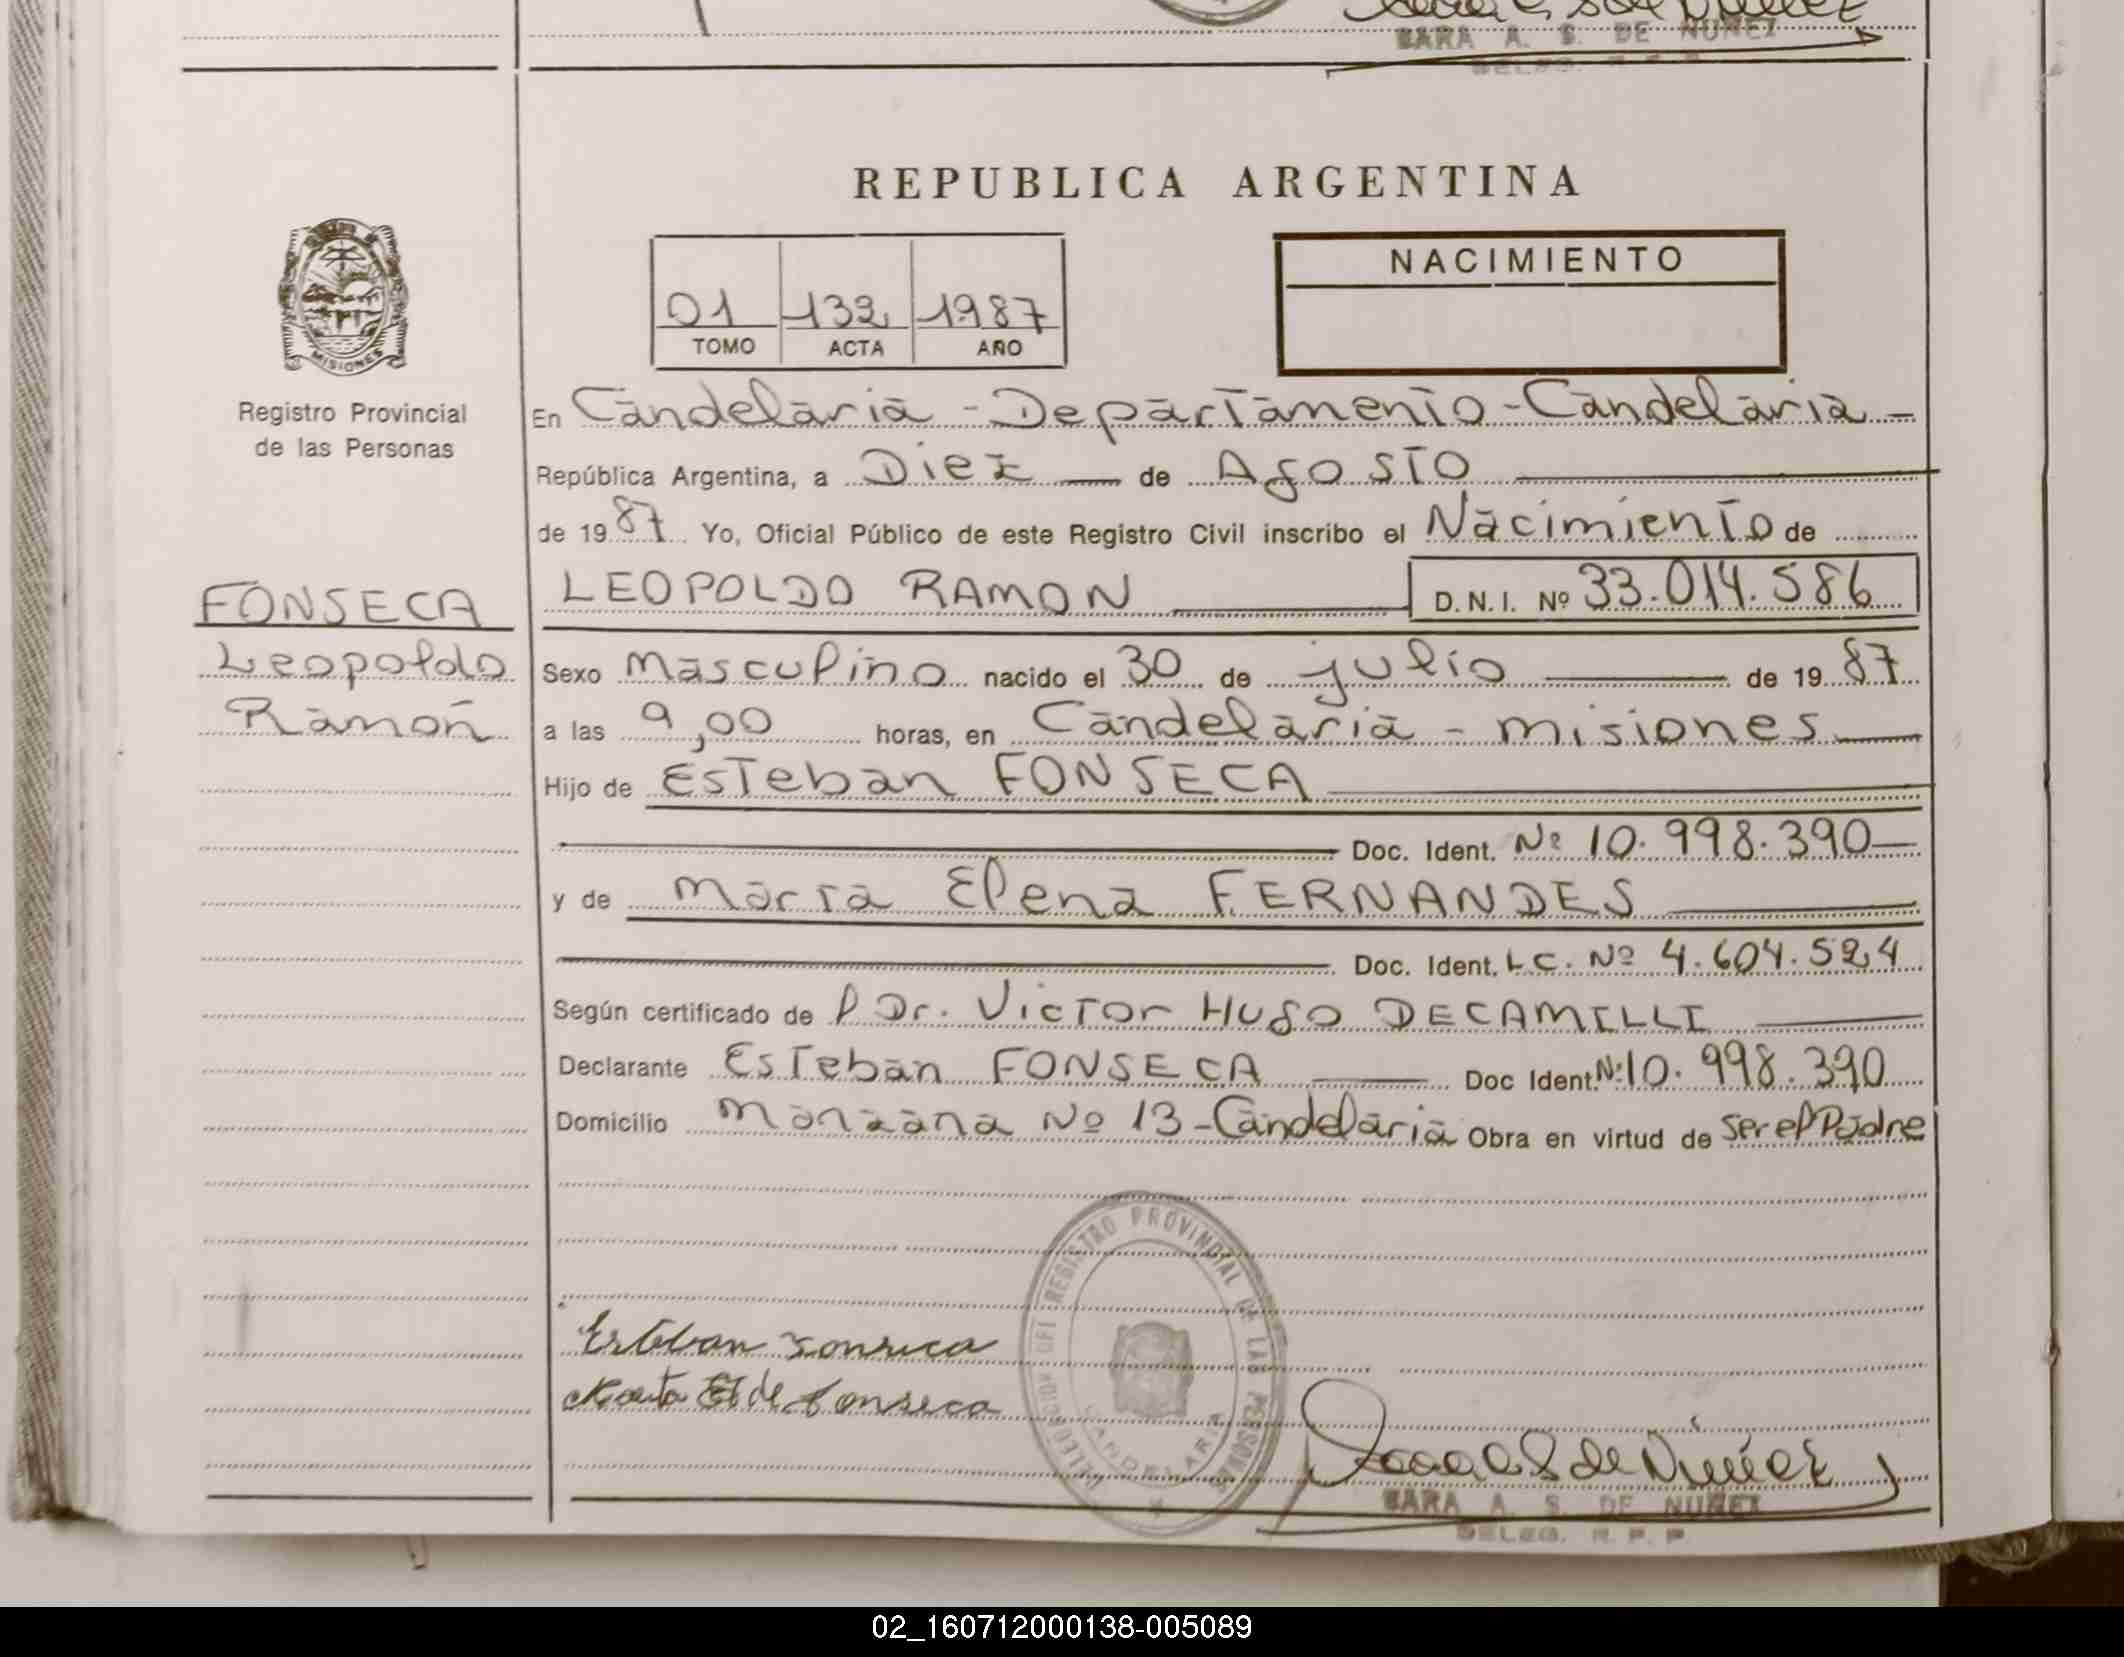 SARA A. S. DE NUÑEZ
DELEG. R. P. P.
REPUBLICA ARGENTINA
MISIONES
Registro Provincial
de las Personas
01 132 1987
TOMO ACTA AÑO
NACIMIENTO
En Candelaria - Departamento - Candelaria -
República Argentina, a Diez de Agosto
de 1987 Yo, Oficial Público de este Registro Civil inscribo el Nacimiento de
FONSECA
Leopoldo
Ramón
LEOPOLDO RAMON D.N.I. Nº 33.014.586
Sexo Masculino nacido el 30 de julio de 1987
a las 9,00 horas, en Candelaria - Misiones
Hijo de Esteban FONSECA
Doc. Ident. Nº 10.998.390
y de Marta Elena FERNANDES
Doc. Ident. L.C. Nº 4.604.524
Según certificado de l Dr. Victor Hugo DECAMILLI
Declarante Esteban FONSECA Doc Ident. Nº 10.998.390
Domicilio Manzana Nº 13 - Candelaria Obra en virtud de Ser el Padre
DELEGACION DEL REGISTRO PROVINCIAL DE LAS PERSONAS
CANDELARIA
Esteban Fonseca
Marta E de Fonseca
Sara A S de Nuñez
SARA A. S. DE NUÑEZ
DELEG. R. P. P.
02_160712000138-005089